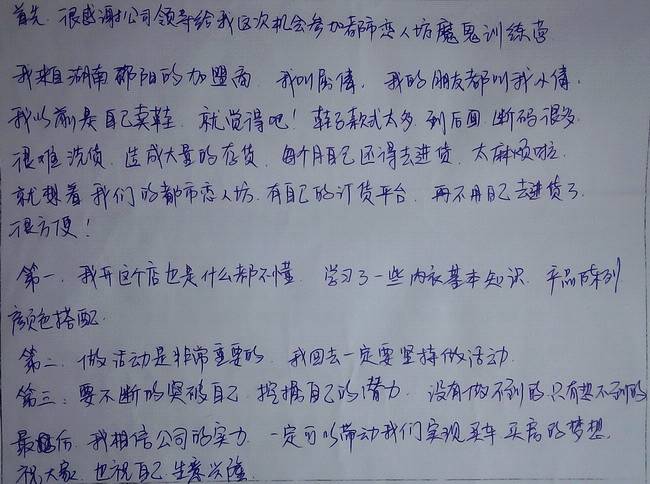 首先. 很感谢公司领导给我这次机会参加都市恋人坊魔鬼训练营
我来自湖南邵阳的加盟商. 我叫周倩. 我的朋友都叫我小倩.
我以前是自己卖鞋. 就觉得吧! 鞋子款式太多. 到后面断码很多.
很难洗货. 造成大量的存货. 每个月自己还得去进货. 太麻烦啦.
就想着我们的都市恋人坊. 有自己的订货平台. 再不用自己去进货了.
很方便!
第一. 我开这个店也是什么都不懂. 学习了一些内衣基本知识. 产品陈列
颜色搭配.
第二. 做活动是非常重要的. 我回去一定要坚持做活动.
第三: 要不断的突破自己. 挖掘自己的潜力. 没有做不到的. 只有想不到的
最后. 我相信公司的实力. 一定可以带动我们实现买车买房的梦想.
祝大家. 也祝自己生意兴隆.